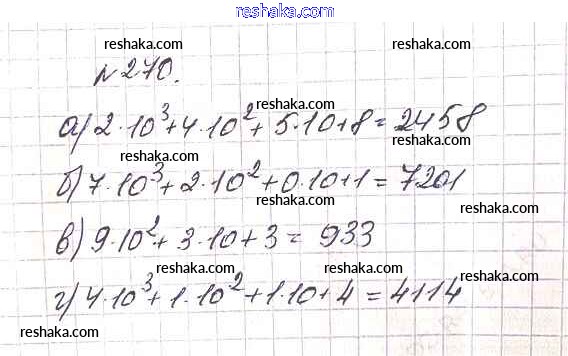 reshaka.com
reshaka.com
reshaka.com
№270.
reshaka.com
а) 2·10³+4·10²+5·10+8=2458
reshaka.com reshaka.com
б) 7·10³+2·10²+0·10+1=7201
reshaka.com
reshaka.com
в) 9·10²+3·10+3=933
reshaka.com reshaka.com
г) 4·10³+1·10²+1·10+4=4114
reshaka.com reshaka.com